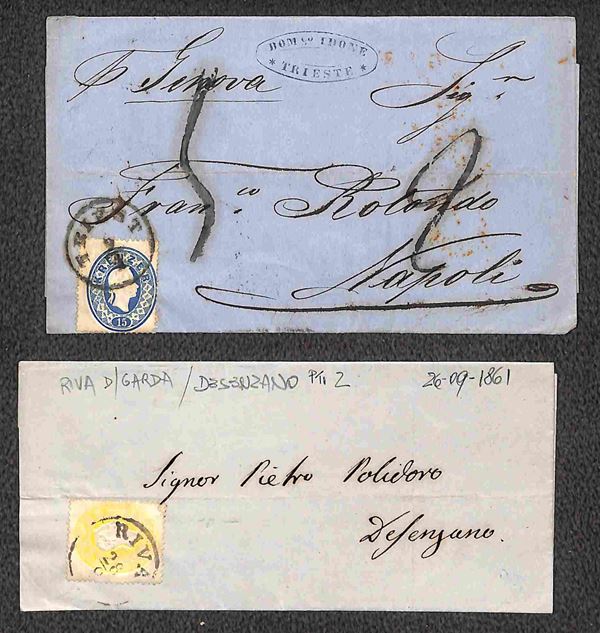 DOM.CO IDONE
* TRIESTE *
p Genova
Sigr
Franco Rotondo
Napoli
TRIEST
KREUZER
15
RIVA D/GARDA / DESENZANO PTI 2 26-09-1861
Signor Pietro Polidoro
Desenzano.
RIVA